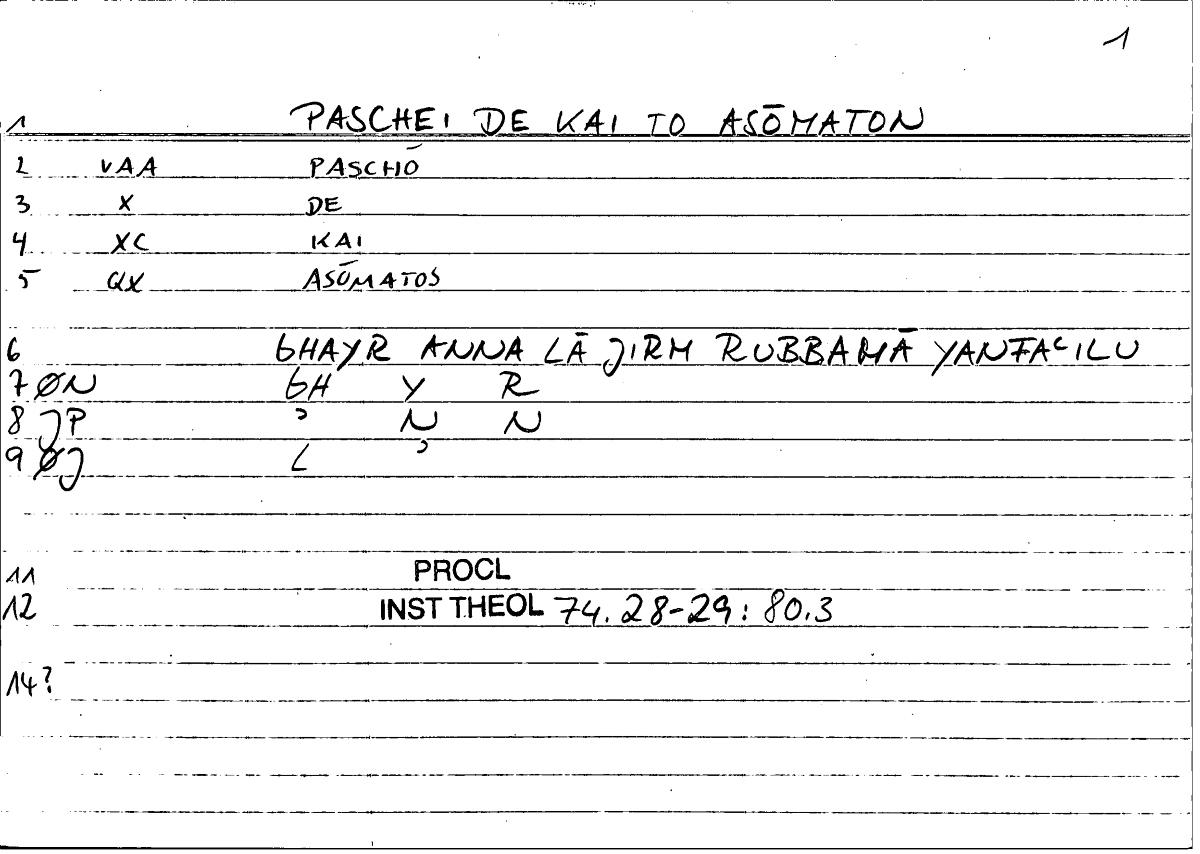 1
1 PASCHEI DE KAI TO ASŌMATON
2 VAA PASCHŌ
3 X DE
4 XC KAI
5 QX ASŌMATOS
6 GHAYR ANNA LĀ JIRM RUBBAMĀ YANFAʿILU
7 ØN GH Y R
8 JP ʾ N N
9 ØJ L ʾ
11 PROCL
12 INST THEOL 74.28-29: 80.3
14?